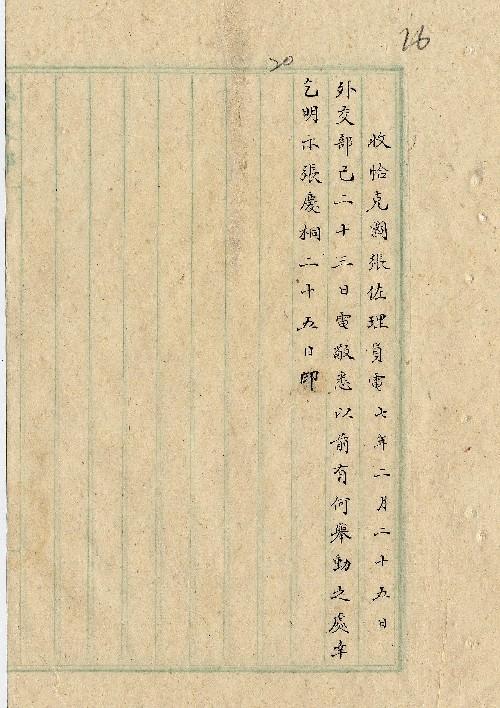 26
20
收恰克圖張佐理員電七年二月二十五日
外交部已二十三日電敬悉以前有何舉動之處幸
乞明示張慶桐二十五日印